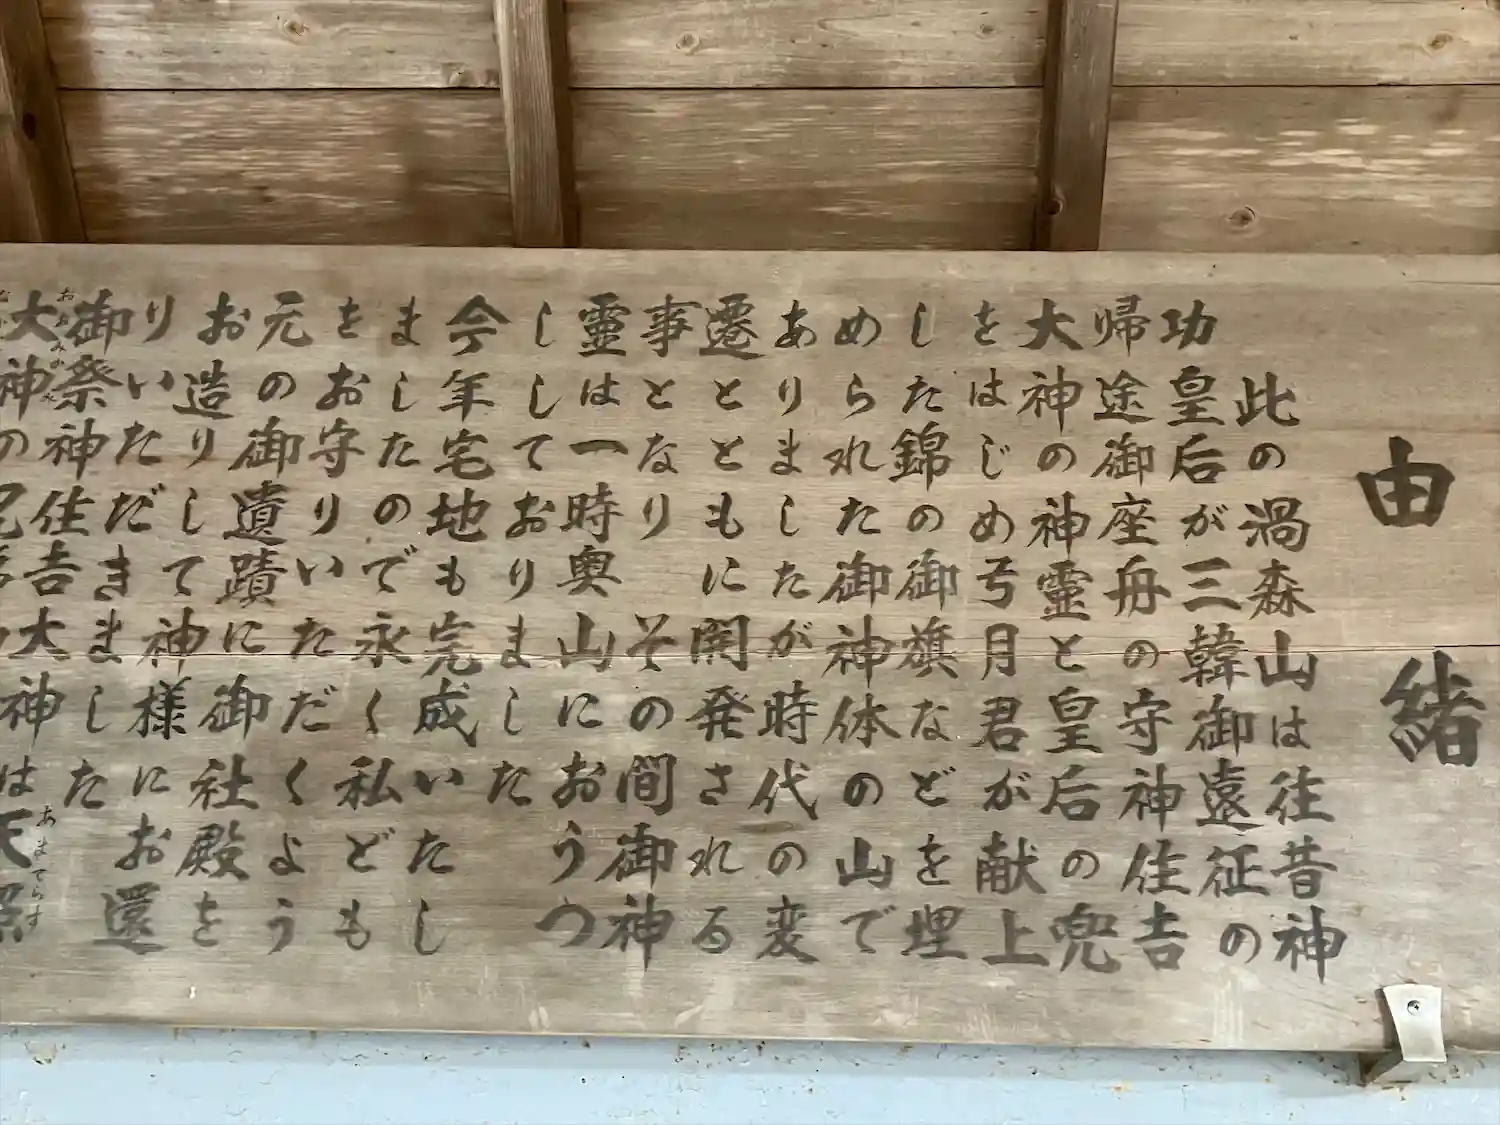 由緒
此の渦森山は往昔神
功皇后が三韓御遠征の
帰途御座舟の守神住吉
大神の神霊と皇后の兜
をはじめ弓月君が献上
した錦の御旗などを埋
められた御神体の山で
ありましたが時代の変
遷とともに開発される
事となり その間御神
霊は一時奥山におうつ
ししておりました
今年宅地も完成いたし
ましたので永く私ども
をお守りいただくよう
元の御遺蹟に御社殿を
お造りして神様にお還
りいただきました
御祭神住吉大神は天照
あまてらす
大神の
おおみかみ